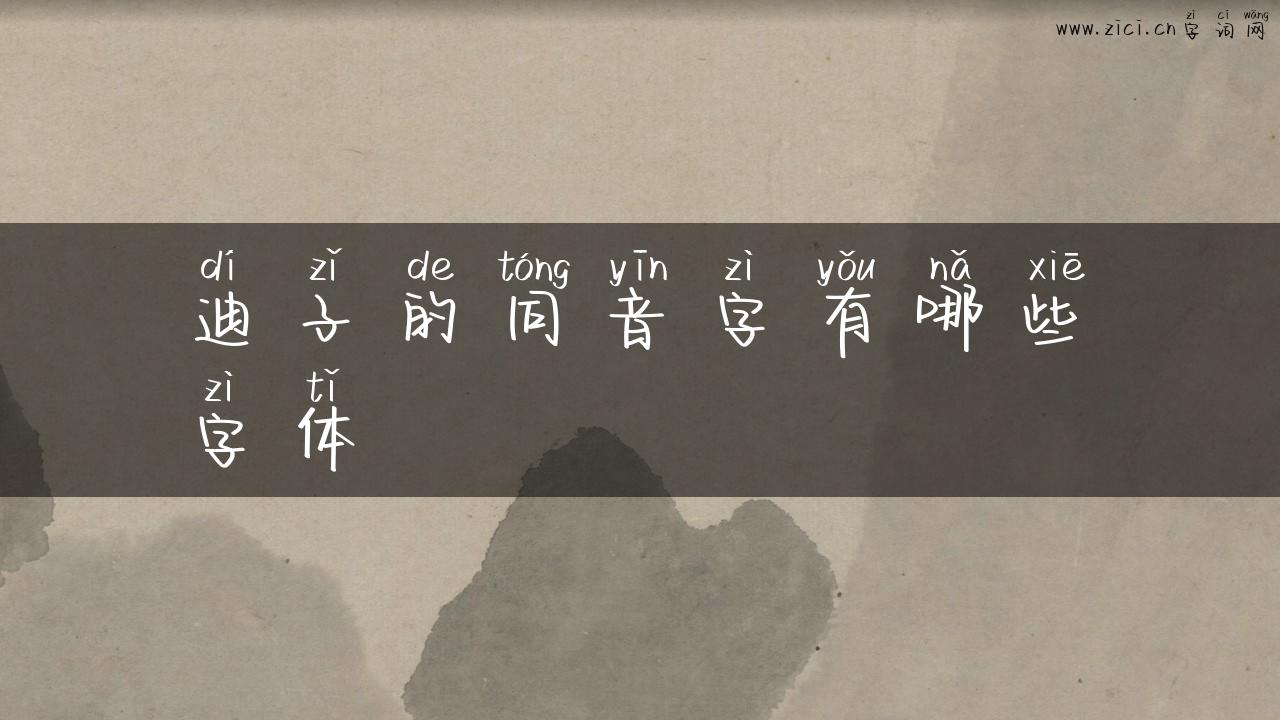 zì cí wǎng
www.zici.cn 字词网
dí zǐ de tóng yīn zì yǒu nǎ xiē
迪子的同音字有哪些
zì tǐ
字体